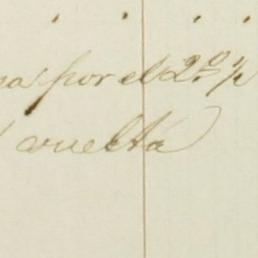 por el 2º ½
vuelta